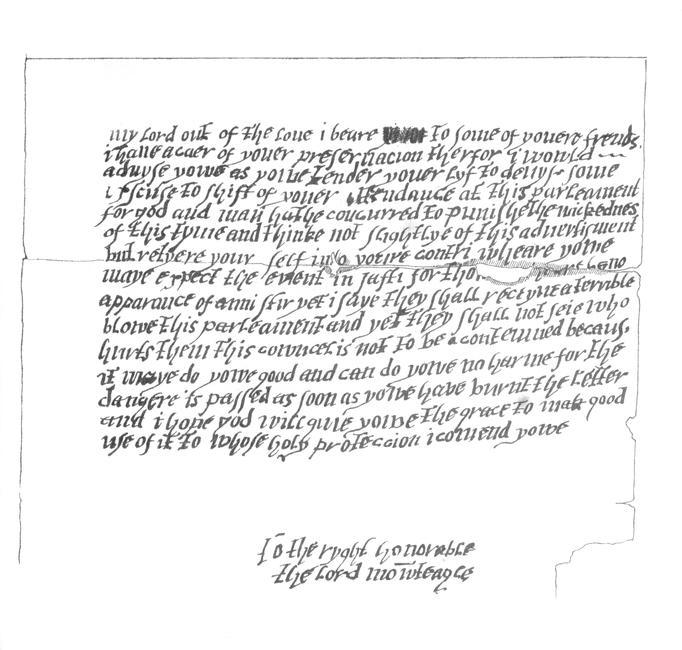 my lord out of the loue i beare to some of youere frends
i haue a caer of youer preseruacion therfor i would
aduyse yowe as yowe tender youer lyf to deuyse some
exscuse to shift of youer attendance at this parleament
for god and man hathe concurred to punishe the wickednes
of this tyme and thinke not slightlye of this aduertisment
but retyere youre self into youre contri wheare yowe
maye expect the event in safti for tho
apparance of anni stir yet i saye they shall receyue a terrible
blowe this parleament and yet they shall not seie who
hurts them this councel is not to be a contemned becaus
it maye do yowe good and can do yowe no harme for the
dangere is passed as soon as yowe have burnt the letter
and i hope god will giue yowe the grace to mak good
use of it to whose holy proteccion i comend yowe
To the ryght honorable
the lord mowteagle